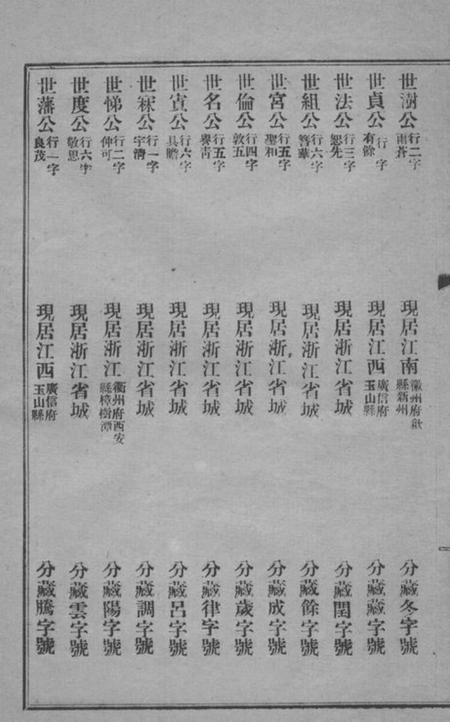 世澍公 行二字雨蒼 現居江南 徽州府歙縣新州 分藏冬字號
世貞公 行 字有餘 現居江西 廣信府玉山縣 分藏藏字號
世法公 行三字恕先 現居浙江省城 分藏閏字號
世組公 行六字簪華 現居浙江省城 分藏餘字號
世宮公 行五字聖和 現居浙江省城 分藏成字號
世倫公 行四字敦五 現居浙江省城 分藏歲字號
世名公 行五字譽青 現居浙江省城 分藏律字號
世寊公 行六字具瞻 現居浙江省城 分藏呂字號
世寀公 行一字宇清 現居浙江省城 分藏調字號
世悌公 行二字仲可 現居浙江 衢州府西安縣樟樹潭 分藏陽字號
世度公 行六字敬思 現居浙江省城 分藏雲字號
世藩公 行一字良茂 現居江西 廣信府玉山縣 分藏騰字號